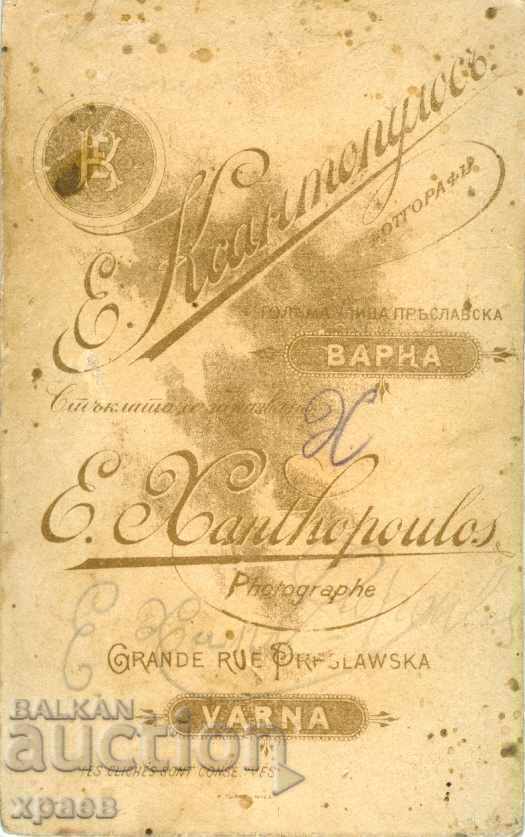 Е. Ксантопулосъ.
ФОТГОРАФЪ
ГОЛѢМА УЛИЦА ПРѢСЛАВСКА
ВАРНА
Стъклата се запазватъ
X
E. Xanthopoulos
Photographe
GRANDE RUE PRESLAWSKA
VARNA
LES CLICHÉS SONT CONSERVÉS
BALKAN
auction
храев